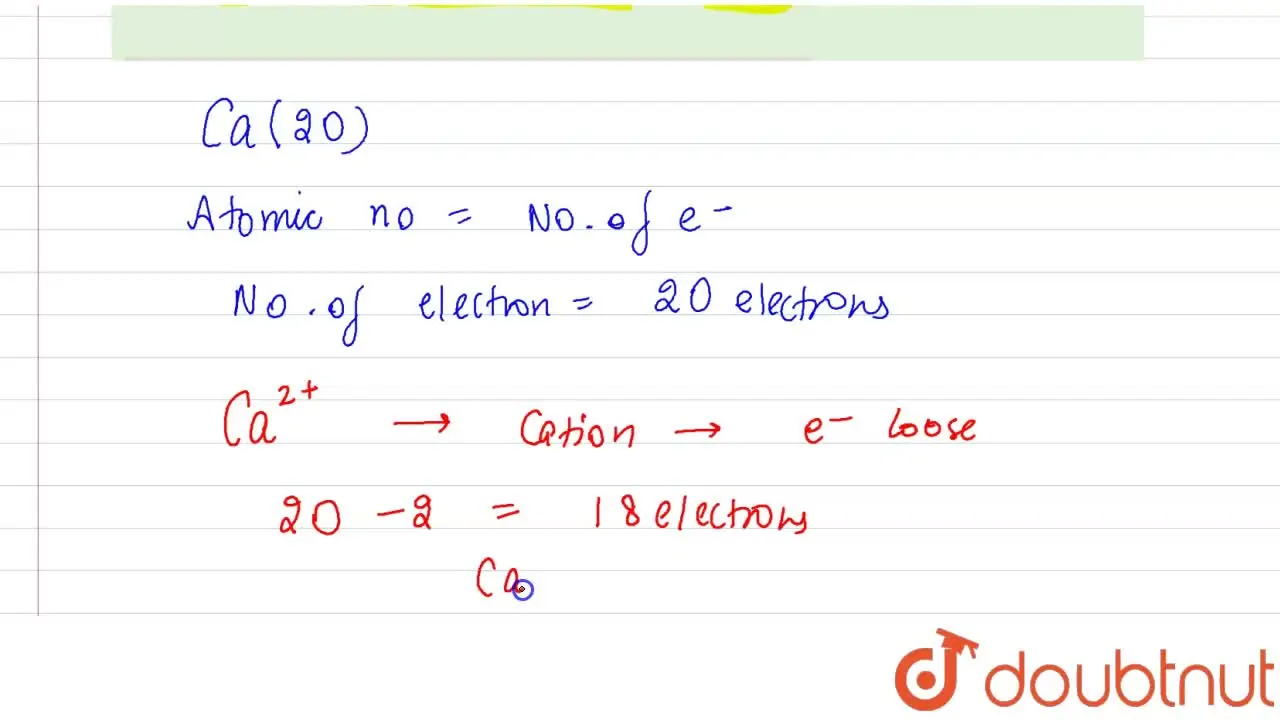 Ca (20)
Atomic no = No. of e-
No. of electron = 20 electrons
Ca²⁺ → Cation → e- loose
20 - 2 = 18 electrons
Ca
doubtnut